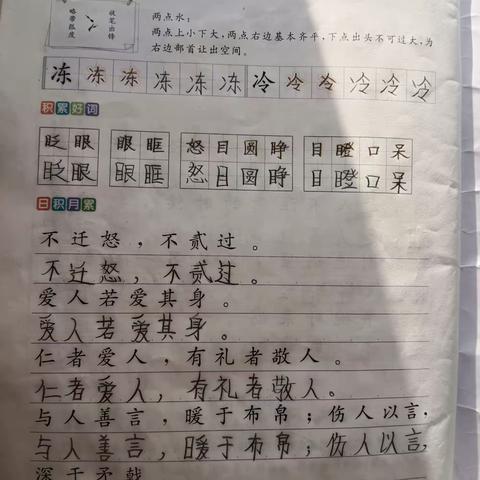 略带弧度
收笔出锋
两点水：
两点上小下大，两点右边基本齐平，下点出头不可过大，为
右边部首让出空间。
冻 冻 冻 冻 冻 冻 冷 冷 冷 冷 冷 冷
积累好词
眨眼 眼眶 怒目圆睁 目瞪口呆
眨眼 眼眶 怒目圆睁 目瞪口呆
日积月累
不迁怒，不贰过。
不迁怒，不贰过。
爱人若爱其身。
爱人若爱其身。
仁者爱人，有礼者敬人。
仁者爱人，有礼者敬人。
与人善言，暖于布帛；伤人以言，
与人善言，暖于布帛；伤人以言，
深于矛戟